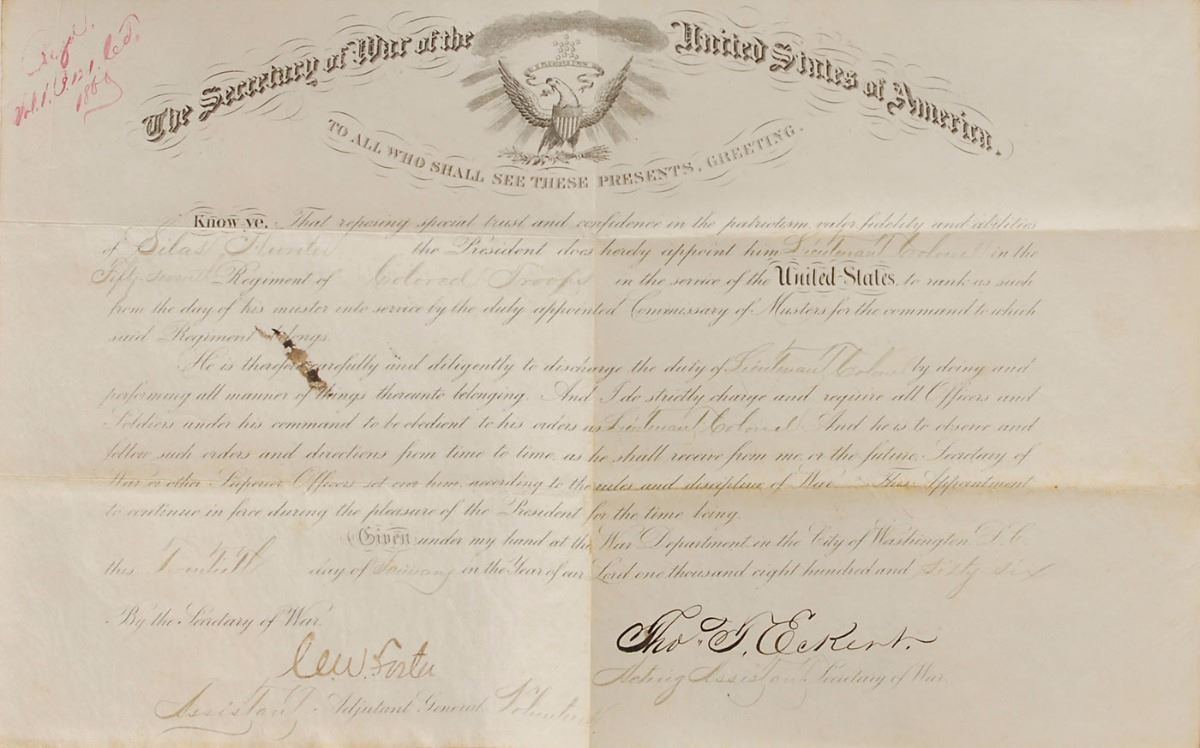 Vol. 1. P. 121.
186
The Secretary of War of the United States of America.
TO ALL WHO SHALL SEE THESE PRESENTS, GREETING.
Know ye, That reposing special trust and confidence in the patriotism, valor, fidelity and abilities
of Silas Hunter the President does hereby appoint him Lieutenant Colonel in the
Fifty-seventh Regiment of Colored Troops in the service of the United States, to rank as such
from the day of his muster into service by the duly appointed Commissary of Musters for the command to which
said Regiment belongs.
He is therefore carefully and diligently to discharge the duty of Lieutenant Colonel by doing and
performing all manner of things thereunto belonging. And I do strictly charge and require all Officers and
Soldiers under his command to be obedient to his orders as Lieutenant Colonel And he is to observe and
follow such orders and directions from time to time, as he shall receive from me, or the future Secretary of
War or other Superior Officers set over him, according to the rules and discipline of War. This Appointment
to continue in force during the pleasure of the President for the time being.
Given under my hand at the War Department, in the City of Washington, D. C.
this day of January in the Year of our Lord one thousand eight hundred and Sixty six
By the Secretary of War.
Tho. T. Eckert.
Acting Assistant Secretary of War.
C. W. Foster
Assistant Adjutant General Volunteers